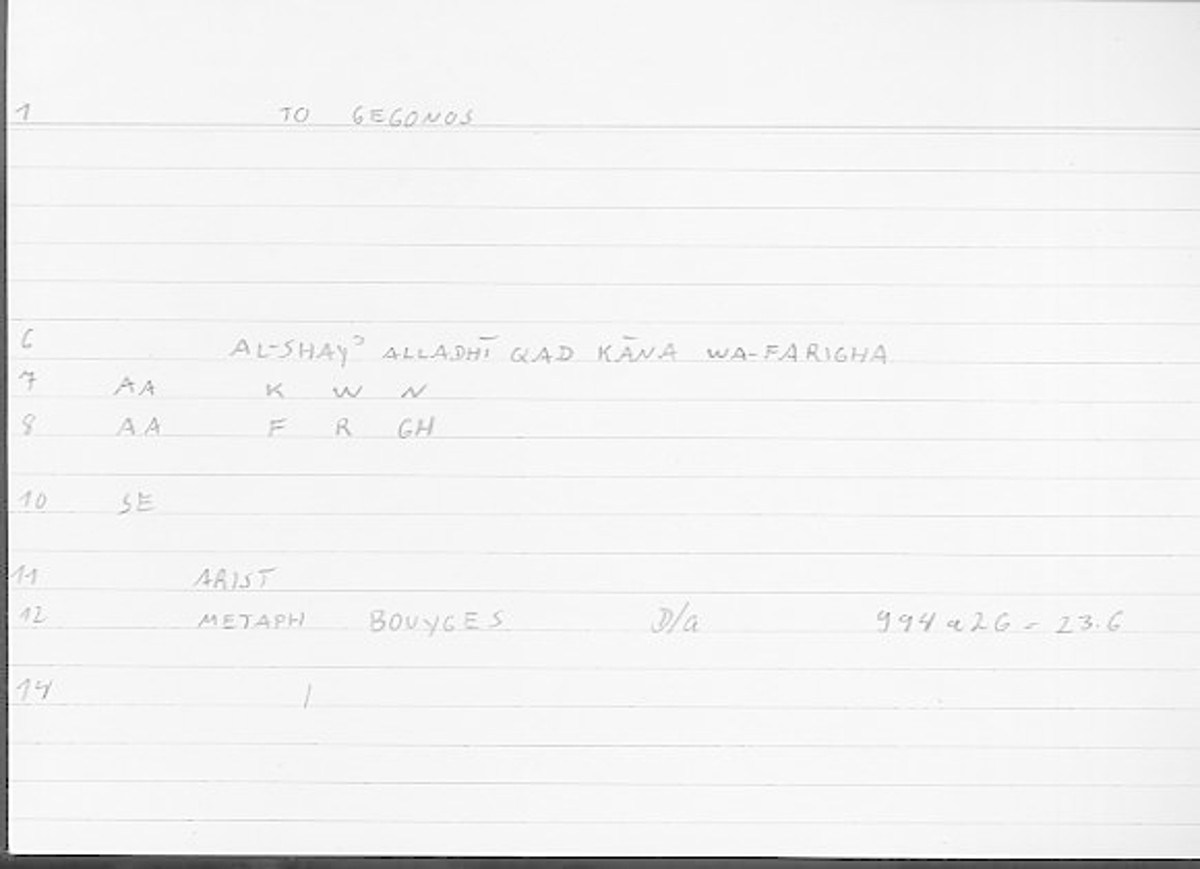 1 TO GEGONOS
6 AL-SHAYʾ ALLADHĪ QAD KĀNA WA-FARIGHA
7 AA K W N
8 AA F R GH
10 SE
11 ARIST
12 METAPH BOUYGES D/a 994 a 26 - 23.6
14 /